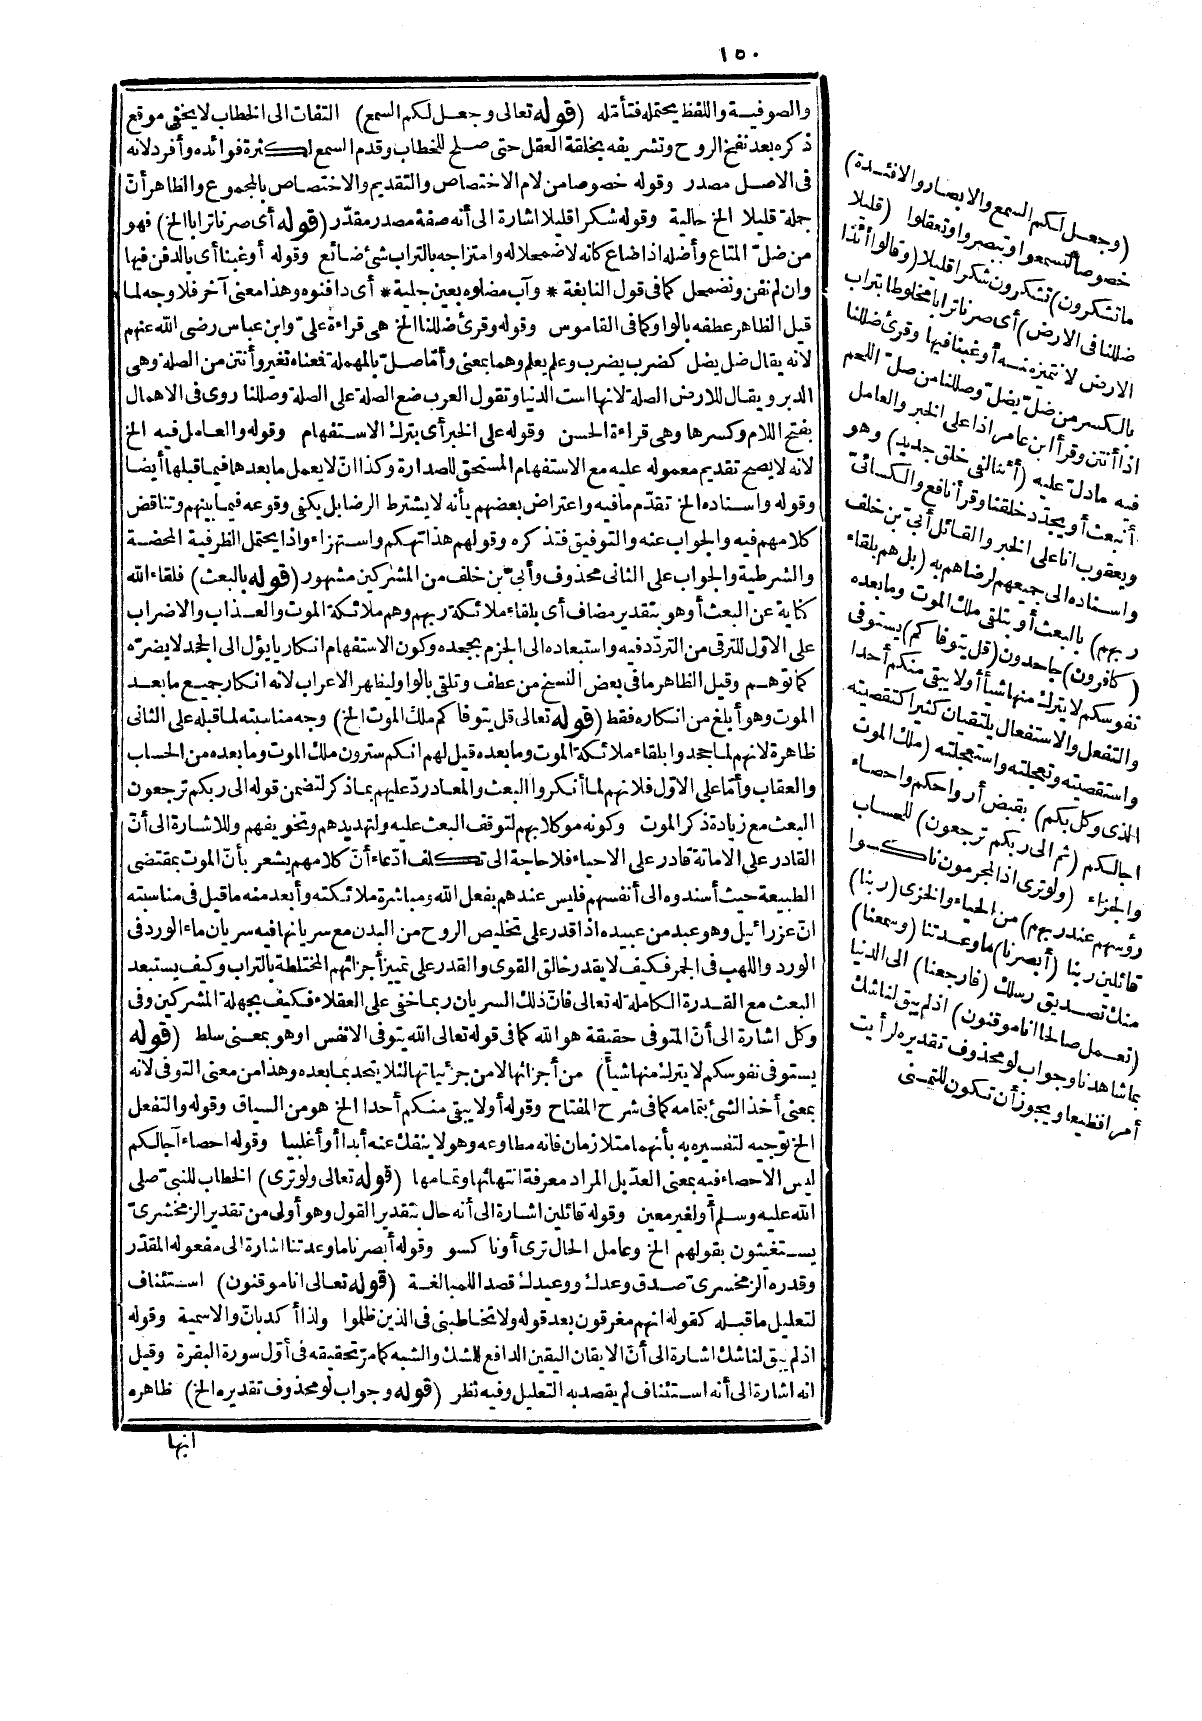 ١٥٠
والصوفية واللفظ يحتمله فتأمله (قوله تعالى وجعل لكم السمع) التفات الى الخطاب لا يخفى موقع
ذكره بعد نفخ الروح وتشريفه بخلقة العقل حتى صلح للخطاب وقدم السمع لكثرة فوائده وأفرد لانه
فى الاصل مصدر وقوله خصوصا من لام الاختصاص والتقديم والاختصاص بالمجموع والظاهر أنّ
جملة قليلا الخ حالية وقوله شكرا قليلا اشارة الى أنه صفة مصدر مقدّر (قوله أى صرنا ترابا الخ) فهو
من ضلّ المتاع وأضله اذا ضاع كانه لاضمحلاله وامتزاجه بالتراب شئ ضائع وقوله أو غبنا أى بالدفن فيها
وان لم نفن ونضمحل كما فى قول النابغة * وآب مضلوه بعين جلية * أى دافنوه وهذا معنى آخر فلا وجه لما
قيل الظاهر عطفه بالواو كما فى القاموس وقوله وقرئ ضللنا الخ هى قراءة علىّ وابن عباس رضى الله عنهم
لانه يقال ضل يضل كضرب يضرب وعلم يعلم وهما بمعنى وأمّا صلّ بالمهملة فمعناه تغير وأنتن من الصلة وهى
الدبر ويقال للارض الصلة لانها است الدنيا وتقول العرب ضع الصلة على الصلة وصللنا روى فى الاهمال
بفتح اللام وكسرها وهى قراءة الحسن وقوله على الخبر أى بترك الاستفهام وقوله والعامل فيه الخ
لانه لا يصح تقديم معموله عليه مع الاستفهام المستحق للصدارة وكذا انّ لا يعمل ما بعدها فيما قبلها أيضا
وقوله واسناده الخ تقدّم ما فيه واعتراض بعضهم بأنه لا يشترط الرضا بل يكفى وقوعه فيما بينهم وتناقض
كلامهم فيه والجواب عنه والتوفيق فتذكره وقولهم هذا تهكم واستهزاء واذا يحتمل الظرفية المحضة
والشرطية والجواب على الثانى محذوف وأبىّ بن خلف من المشركين مشهور (قوله بالبعث) فلقاء الله
كناية عن البعث أو هو بتقدير مضاف أى بلقاء ملائكة ربهم وهم ملائكة الموت والعذاب والاضراب
على الاوّل للترقى من التردّد فيه واستبعاده الى الجزم بجحده وكون الاستفهام انكاريا يؤل الى الجحد لا يضرّه
كما توهم وقيل الظاهر ما فى بعض النسخ من عطف وتلقى بالواو ليظهر الاعراب لانه انكار جميع ما بعد
الموت وهو أبلغ من انكاره فقط (قوله تعالى قل يتوفاكم ملك الموت الخ) وجه مناسبته لما قبله على الثانى
ظاهرة لانهم لما جحدوا بلقاء ملائكة الموت وما بعده قيل لهم انكم سترون ملك الموت وما بعده من الحساب
والعقاب وأمّا على الاوّل فلانهم لما أنكروا البعث والمعاد ردّ عليهم بما ذكر لتضمن قوله الى ربكم ترجعون
البعث مع زيادة ذكر الموت وكونه موكلا بهم لتوقف البعث عليه ولتهديدهم وتخويفهم وللاشارة الى أنّ
القادر على الاماتة قادر على الاحياء فلا حاجة الى تكلف ادّعاء أنّ كلامهم يشعر بأنّ الموت بمقتضى
الطبيعة حيث أسندوه الى أنفسهم فليس عندهم بفعل الله ومباشرة ملائكته وأبعد منه ما قيل فى مناسبته
انّ عزرائيل وهو عبد من عبيده اذا قدر على تخليص الروح من البدن مع سريانها فيه سريان ماء الورد فى
الورد واللهب فى الجمر فكيف لا يقدر خالق القوى والقدر على تمييز أجزائهم المختلطة بالتراب وكيف يستبعد
البعث مع القدرة الكاملة له تعالى فانّ ذلك السريان ربما خفى على العقلاء فكيف بجهلة المشركين وفى
وكل اشارة الى أنّ المتوفى حقيقة هو الله كما فى قوله تعالى الله يتوفى الانفس اوهو بمعنى سلط (قوله
يستوفى نفوسكم لا يترك منها شيأ) من أجزائها لا من جزئياتها لئلا يتحد بما بعده وهذا من معنى التوفى لانه
بمعنى أخذ الشئ بتمامه كما فى شرح المفتاح وقوله أو لا يبقى منكم أحدا الخ هو من السياق وقوله والتفعل
الخ توجيه لتفسيره به بأنهما متلازمان فانه مطاوعه وهو لا ينفك عنه أبدا أو أغلبيا وقوله احصاء آجالكم
ليس الاحصاء فيه بمعنى العدّ بل المراد معرفة انتهائها وتمامها (قوله تعالى ولو ترى) الخطاب للنبىّ صلى
الله عليه وسلم أو لغير معين وقوله قائلين اشارة الى أنه حال بتقدير القول وهو أولى من تقدير الزمخشرىّ
يستغيثون بقولهم الخ وعامل الحال ترى أو ناكسو وقوله أبصرنا ما وعدتنا اشارة الى مفعوله المقدّر
وقدره الزمخشرىّ صدق وعدك ووعيدك قصدا للمبالغة (قوله تعالى انا موقنون) استئناف
لتعليل ما قبله كقوله انهم مغرقون بعد قوله ولا تخاطبنى فى الذين ظلموا ولذا أكد بانّ والاسمية وقوله
اذ لم يبق لنا شك اشارة الى أنّ الايقان اليقين الدافع للشك والشبه كما مرّ تحقيقه فى أوّل سورة البقرة وقيل
انه اشارة الى أنه استئناف لم يقصد به التعليل وفيه نظر (قوله وجواب لو محذوف تقديره الخ) ظاهره
انها
(وجعل لكم السمع والابصار والافئدة)
خصوصا لتسمعوا وتبصروا وتعقلوا (قليلا
ما تشكرون) تشكرون شكرا قليلا (وقالوا أئذا
ضللنا فى الارض) أى صرنا ترابا مخلوطا بتراب
الارض لا نتميز منه أو غبنا فيها وقرئ ضللنا
بالكسر من ضلّ يضلّ وصللنا من صلّ اللحم
اذا أنتن وقرأ ابن عامر اذا على الخبر والعامل
فيه ما دلّ عليه (أئنا لفى خلق جديد) وهو
أنبعث أو يجدّد خلقنا وقرأ نافع والكسائىّ
ويعقوب انا على الخبر والقائل أبىّ بن خلف
واسناده الى جميعهم لرضاهم به (بل هم بلقاء
ربهم) بالبعث أو بتلقى ملك الموت وما بعده
(كافرون) جاحدون (قل يتوفاكم) يستوفى
نفوسكم لا يترك منها شيأ أو لا يبقى منكم أحدا
والتفعل والاستفعال يلتقيان كثيرا كتقصيته
واستقصيته وتعجلته واستعجلته (ملك الموت
الذى وكل بكم) بقبض أرواحكم واحصاء
اجالكم (ثم الى ربكم ترجعون) للحساب
والجزاء (ولو ترى اذ المجرمون ناكسوا
رؤسهم عند ربهم) من الحياء والخزى (ربنا)
قائلين ربنا (أبصرنا) ما وعدتنا (وسمعنا)
منك تصديق رسلك (فارجعنا) الى الدنيا
(نعمل صالحا انا موقنون) اذ لم يبق لنا شك
بما شاهدنا وجواب لو محذوف تقديره لرأيت
أمرا فظيعا ويجوز أن تكون للتمنى